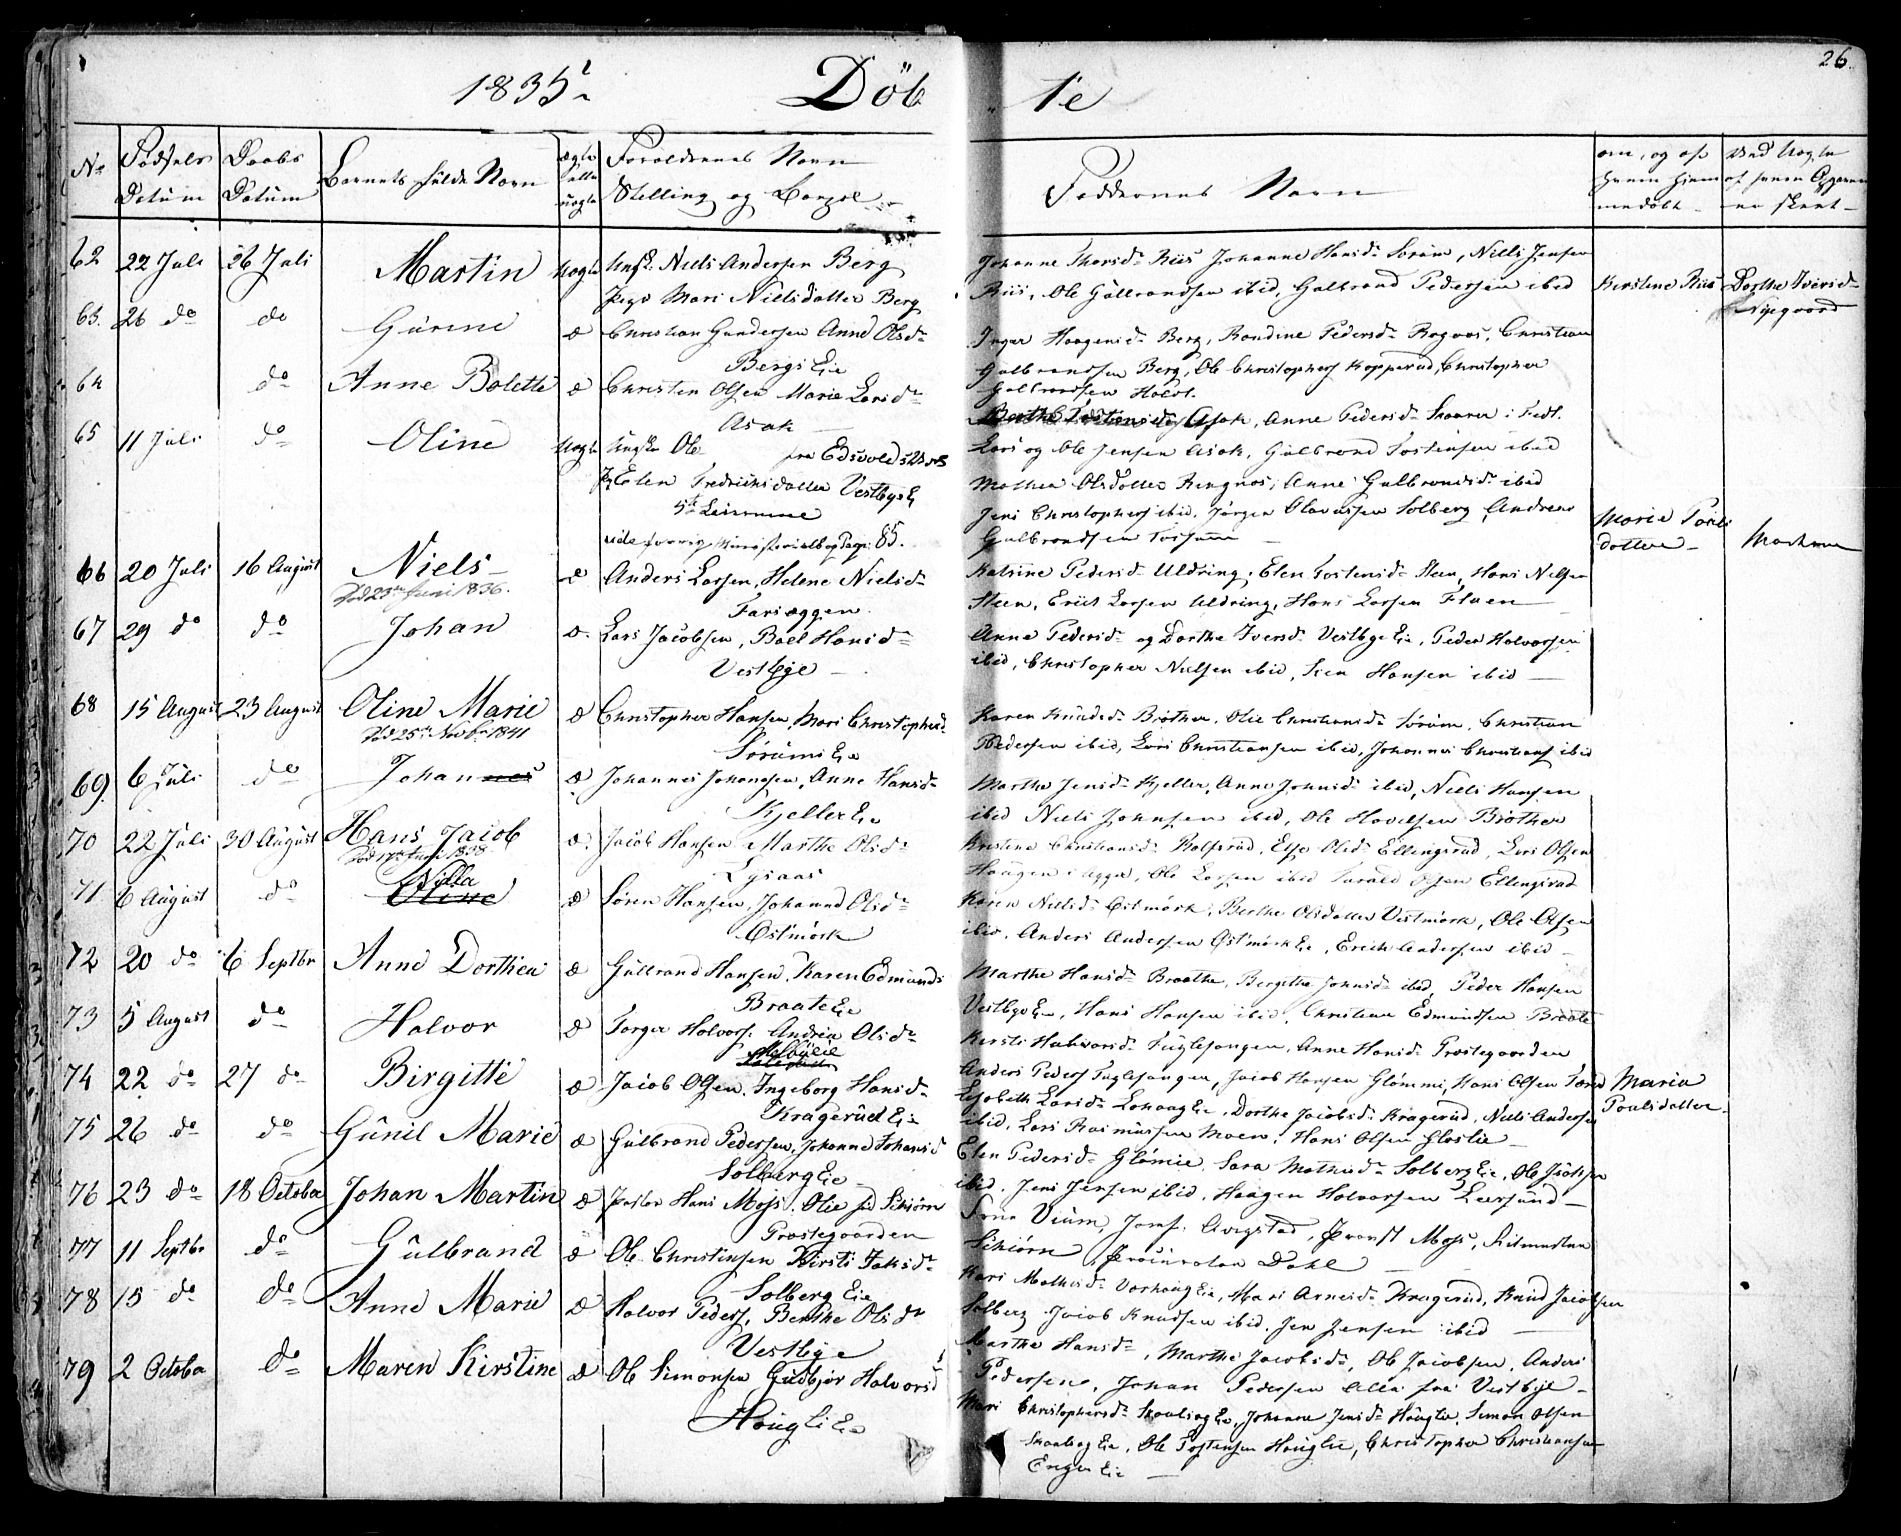 1835
Döb
te
26.
No
Fødsels Datum
Daabs Datum
Barnets fulde Navn
ægte eller uægte
Forældrenes Navn
Stilling og Bopæl
Faddernes Navn
62 22 Juli 26 Juli Martin Uægte Ungk. Niels Andersen Berg
Pige Mari Nielsdatter Berg
Johanne Hansd. Sørum, Niels Jensen
Riis, Ole Gulbrandsen ibid, Gulbrand Pedersen ibid
Kirstine Riis
Dorthe Iversd.
63. 26 do do Gurine æ Christian Gundersen Anne Olsd.
Bergs Eie
Inger Haagensd. Berg, Randine Pedersd. Christian
Gulbrandsen Berg, Ole Christophers Kopperud, Christopher
Gulbrandsen Holst.
64 do Anne Bolette æ Christen Olsen Marie Larsd.
Asak
Asak, Anne Pedersd. Skaarer
Lars og Ole Jensen Asak, Gulbrand Tostensen ibid
65 11 Juli do Oline Uægte Ungk. Ole fra Edsvolds Værk
P. Elen Fredriksdatter Vestbye E
Mathea Olsdatter Ringnæs, Anne Gulbrandsd. ibid
Jens Christophers ibid, Jørgen Olavessen Solberg, Andreas
Gulbrandsen
Marie Pouls
datter
66 20 Juli 16 August Niels
Død 23de Juni 1836.
æ Anders Larsen, Helene Nielsd.
Farseggen
Katrine Pedersd. Uldring, Elen Tostensd. Steen, Hans Nilsen
Steen, Erik Larsen Uldring, Hans Larsen Flaen
67 29 do do Johan æ. Lars Jacobsen, Boel Hansd.
Vestbye
Anne Pedersd. og Dorthe Iversd. Vestbye Eie, Peder Halvorsen
ibid, Christopher Nielsen ibid, Hansen ibid
68 15 August 23 August Oline Marie
Død 25de Novbr 1841
æ Christopher Hansen, Mari Christophersd.
Sørums Eie
Karen Knudsd. Bråthen, Olie Christiansd. Sørum, Christian
Pedersen ibid, Lars Christiansen ibid, Johannes Christians ibid
69. 6 Juli do Johannes æ Johannes Johansen, Anne Hansd.
Kjeller Eie
Marthe Jensd. Kjeller, Anne Johnsd. ibid, Niels Hansen
ibid Niels Johnsen ibid, Ole Hovelsen Bråthen
70 22 Juli 30 August Hans Jacob
æ. Jacob Hansen Marthe Olsd.
Lysaas
Kirstine Christiansd. Rolfsrud, Else Olsd. Ellingsrud, Lars Olsen
Haugen, Ole Larsen ibid Olsen Ellingsrud
71 6 August do Oline
Nilla
æ Søren Hansen, Johanne Olsd.
Østmörk
Karen Nielsd. Østmörk, Berthe Olsdatter Vestmörk, Ole Olsen
ibid, Anders Andersen Østmörk Eie, Erich Andersen ibid
72 20 do 6 Septbr Anne Dorthea æ Gulbrand Hansen, Karen Edmunds
Braate Eie
Marthe Hansd. Braathe, Bergithe Johnsd. ibid, Peder Hansen
Vestbye Eie, Hans Hansen ibid, Christian Edmundsen Braate
73 5 August do Halvor æ Torger Halvors. Andrea Olsd.
Kirsti Halvorsd. Fuglesangen, Anne Hansd. Præstegaarden
Anders Peders Fuglesangen, Jacob Hansen Glömmi, Hans Olsen
74 22 do 27 do Birgitte æ Jacob Olsen, Ingeborg Hansd.
Kragerud Eie
Elisabeth Larsd. Lohaag Eie, Dorthe Jacobsd. Kragerud, Niels Andersen
ibid, Lars Rasmussen Moen, Hans Olsen
Maria
Poulsdatter
75 26 do do Gunil Marie æ Gulbrand Pedersen, Johanne Johansd
Solberg Eie
Elen Pedersd. Glömie, Sara Mathisd. Solberg Eie, Ole Jacobsen
ibid, Jens Jensen ibid, Haagen Halvorsen Leersund
76 23 do 18 October Johan Martin æ Pastor Hans Moss. Olie fød Schiørn
Præstegaarden
Frue Vium, Jomf. Aurgstad, Provst Moss,
Schiørn, Procurator Dahl
77 11 Septbr do Gulbrand æ Ole Christensen Kirsti Jacobsd.
Solberg Eie
Kari Mathisd. Vardhaug Eie, Mari Arnesd. Kragerud, Knud Jacobsen
Solberg Jacob Knudsen ibid, Jen Jensen ibid
78 15 do do Anne Marie æ Halvor Peders, Berthe Olsdr
Vestbye
Marthe Hansd., Marthe Jacobsd., Ole Jacobsen, Anders
Pedersen, Johan Pedersen alle fra Vestbye
79 2 October do Maren Kirstine æ Ole Simonsen Gudbjør Halvorsd
Houglie Eie
Mari Christophersd. Eie, Johanne Jensd. Houglie, Simon Olsen
Eie, Ole Tostensen Houglie, Christopher Christiansen
Enger Eie